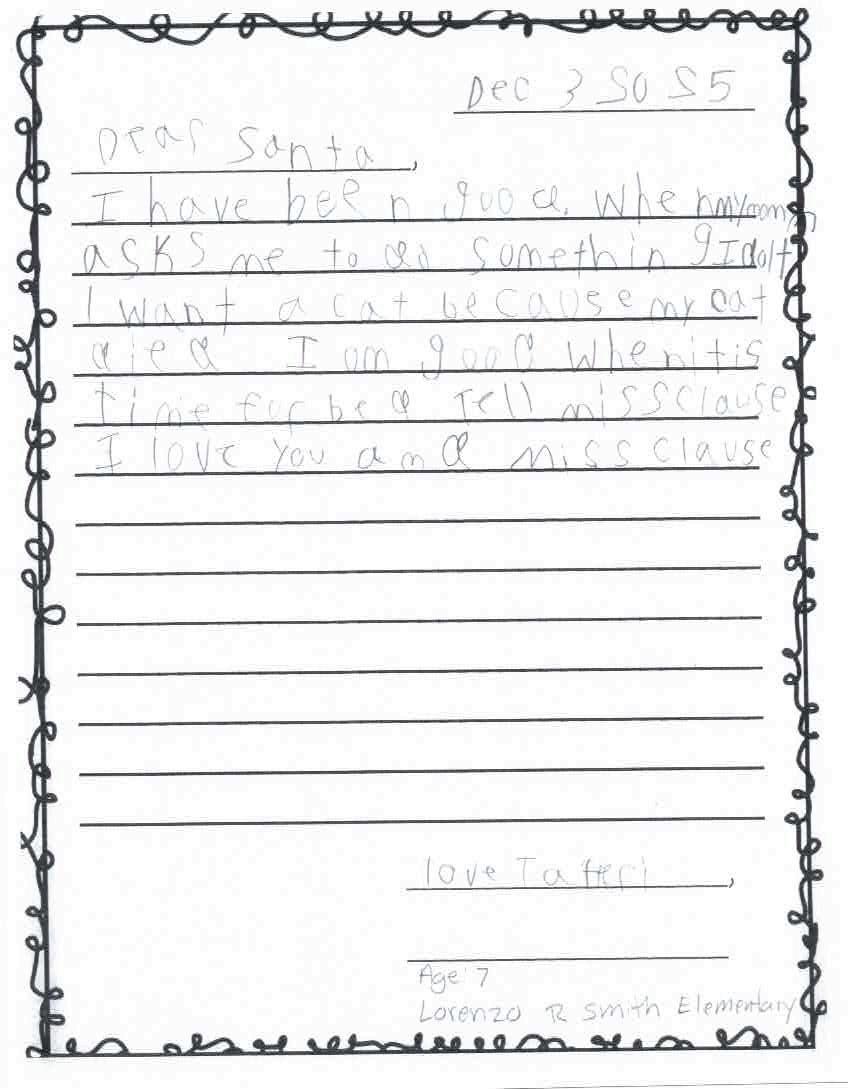 Dec 3 2025
Dear Santa,
I have been good. When my mom
asks me to do something I do it
I want a cat because my cat
died I am good when it is
time for bed Tell miss clause
I love you and miss clause
love Tatteri,
Age: 7
Lorenzo R Smith Elementary